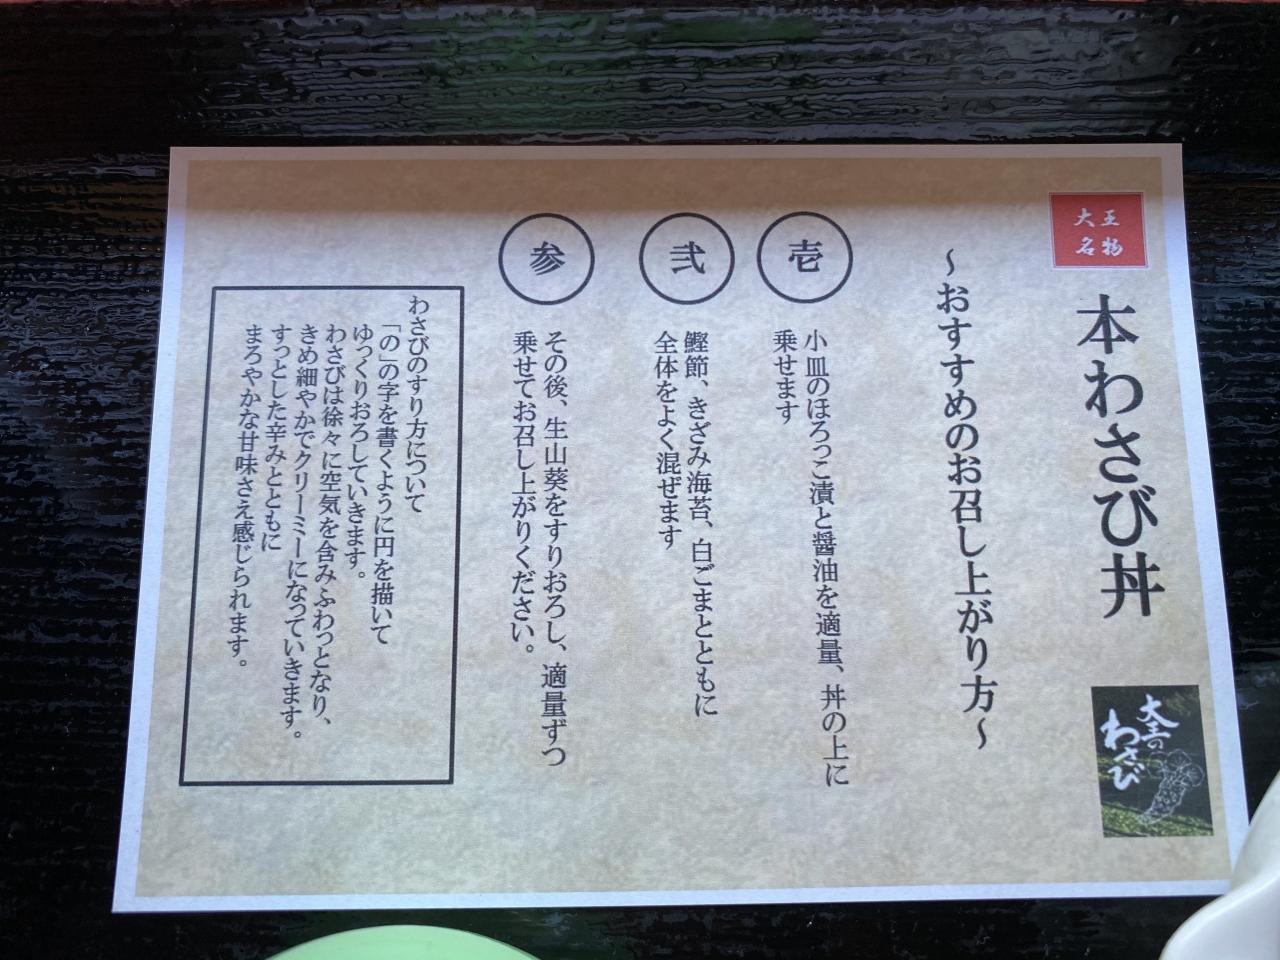 大王
名物
本わさび丼
大王の
わさび
～おすすめのお召し上がり方～
壱
小皿のほろっこ漬と醤油を適量、丼の上に
乗せます
弐
鰹節、きざみ海苔、白ごまとともに
全体をよく混ぜます
参
その後、生山葵をすりおろし、適量ずつ
乗せてお召し上がりください。
わさびのすり方について
「の」の字を書くように円を描いて
ゆっくりおろしていきます。
わさびは徐々に空気を含みふわっとなり、
きめ細やかでクリーミーになっていきます。
すっとした辛みとともに
まろやかな甘味さえ感じられます。